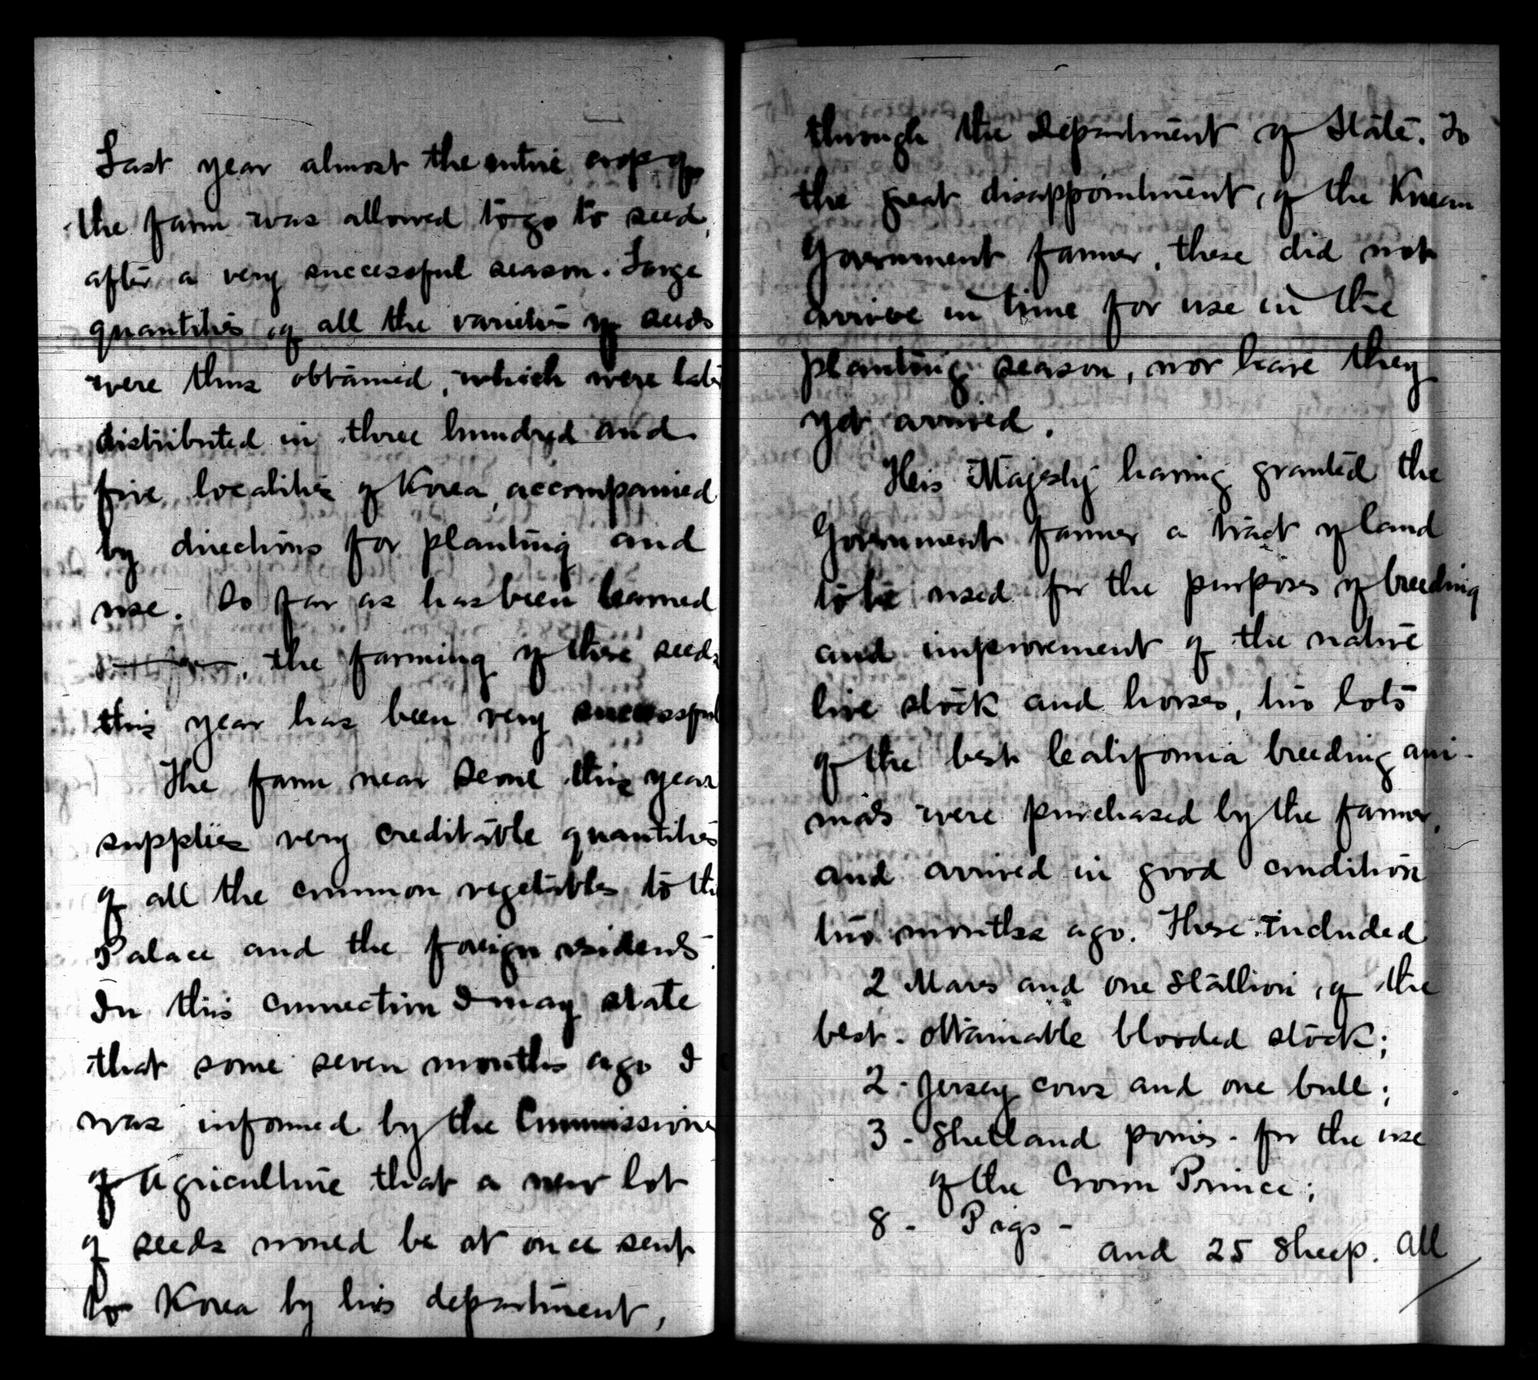 Last year almost the entire crop of
the farm was allowed to go to seed,
after a very successful season. Large
quantities of all the varieties of seeds
were thus obtained, which were late
distributed in three hundred and
five localities of Korea, accompanied
by directions for planting and
use. So far as has been learned
the farming of these seeds
this year has been very successful
The farm near Seoul this year
supplies very creditable quantities
of all the common vegetables to the
Palace and the foreign residents.
In this connection I may state
that some seven months ago I
was informed by the Commissioner
of Agriculture that a new lot
of seeds would be at once sent
to Korea by his department,
through the Department of State. To
the great disappointment, of the Korean
Government farmer, these did not
arrive in time for use in the
planting season, nor have they
yet arrived.
His Majesty having granted the
Government farmer a tract of land
to be used for the purposes of breeding
and improvement of the native
live stock and horses, two lots
of the best California breeding ani-
mals were purchased by the farmer,
and arrived in good condition
two months ago. These included
2 Mares and one Stallion, of the
best - obtainable blooded stock;
2 - Jersey cows and one bull;
3 - Shetland ponies - for the use
of the Crown Prince;
8 - Pigs -
and 25 Sheep. All